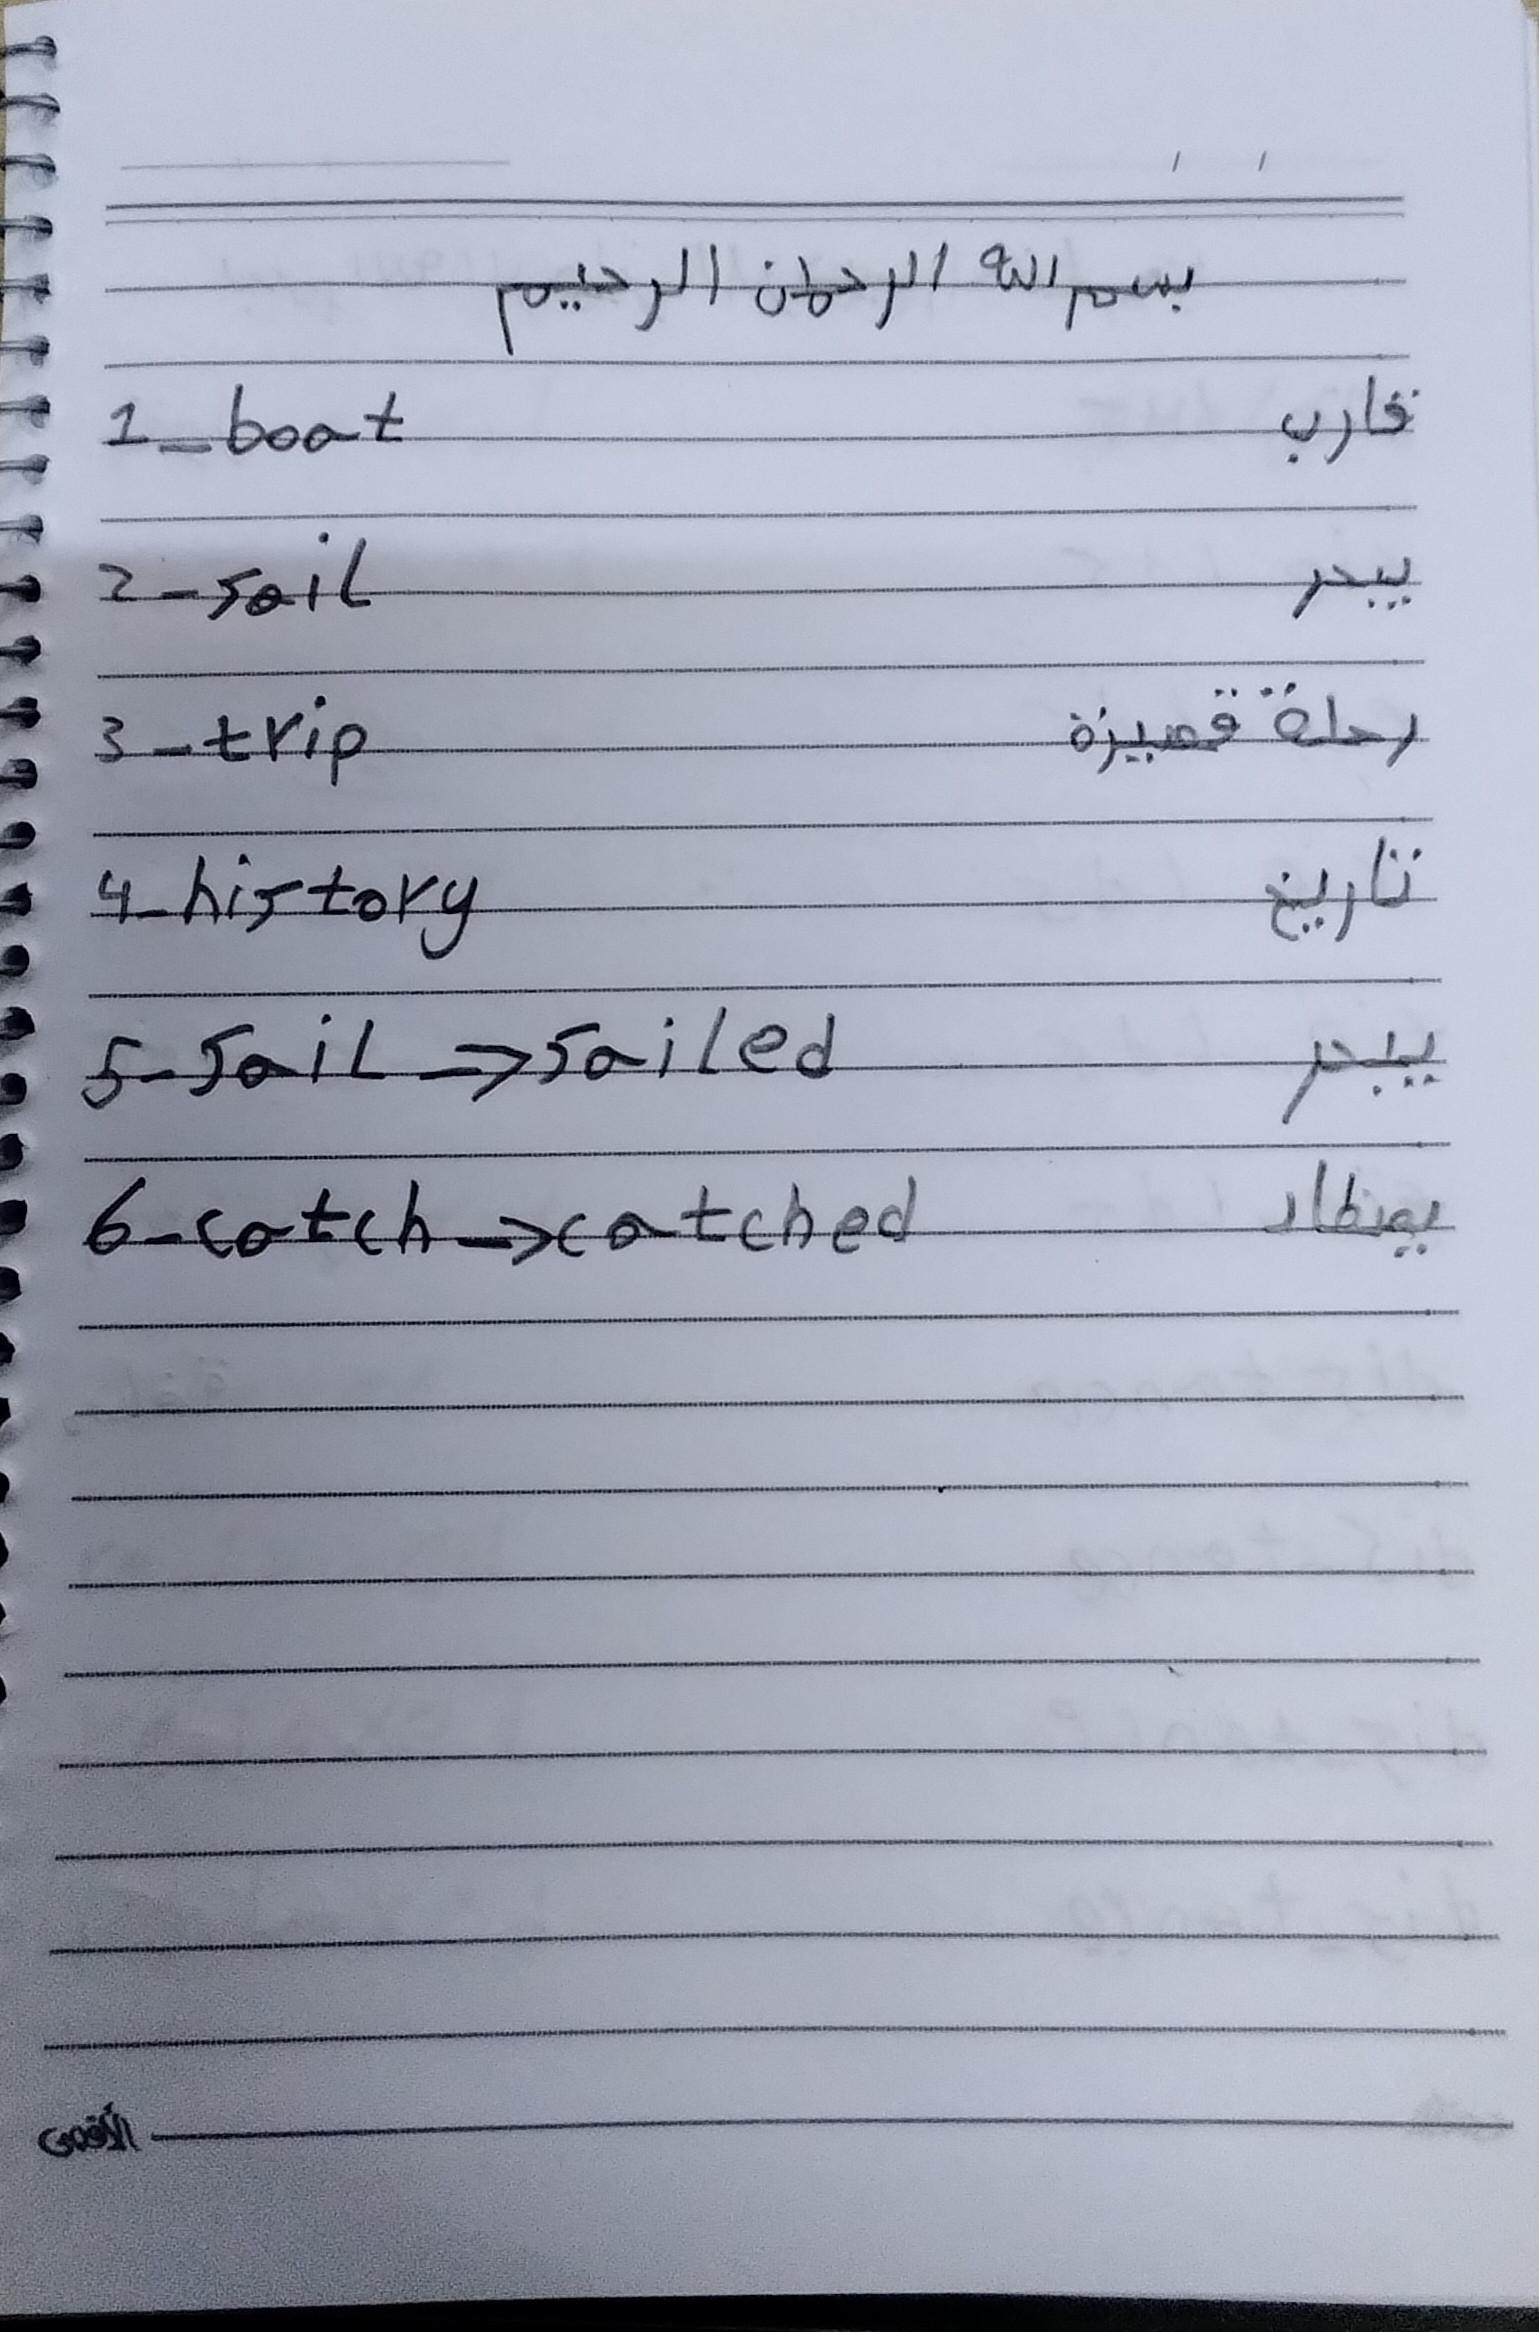 بسم الله الرحمن الرحيم
1_boat قارب
2-sail يبحر
3-trip رحلة قصيرة
4-history تاريخ
5-sail->sailed يبحر
6-catch->catched يصطاد
الأقصى